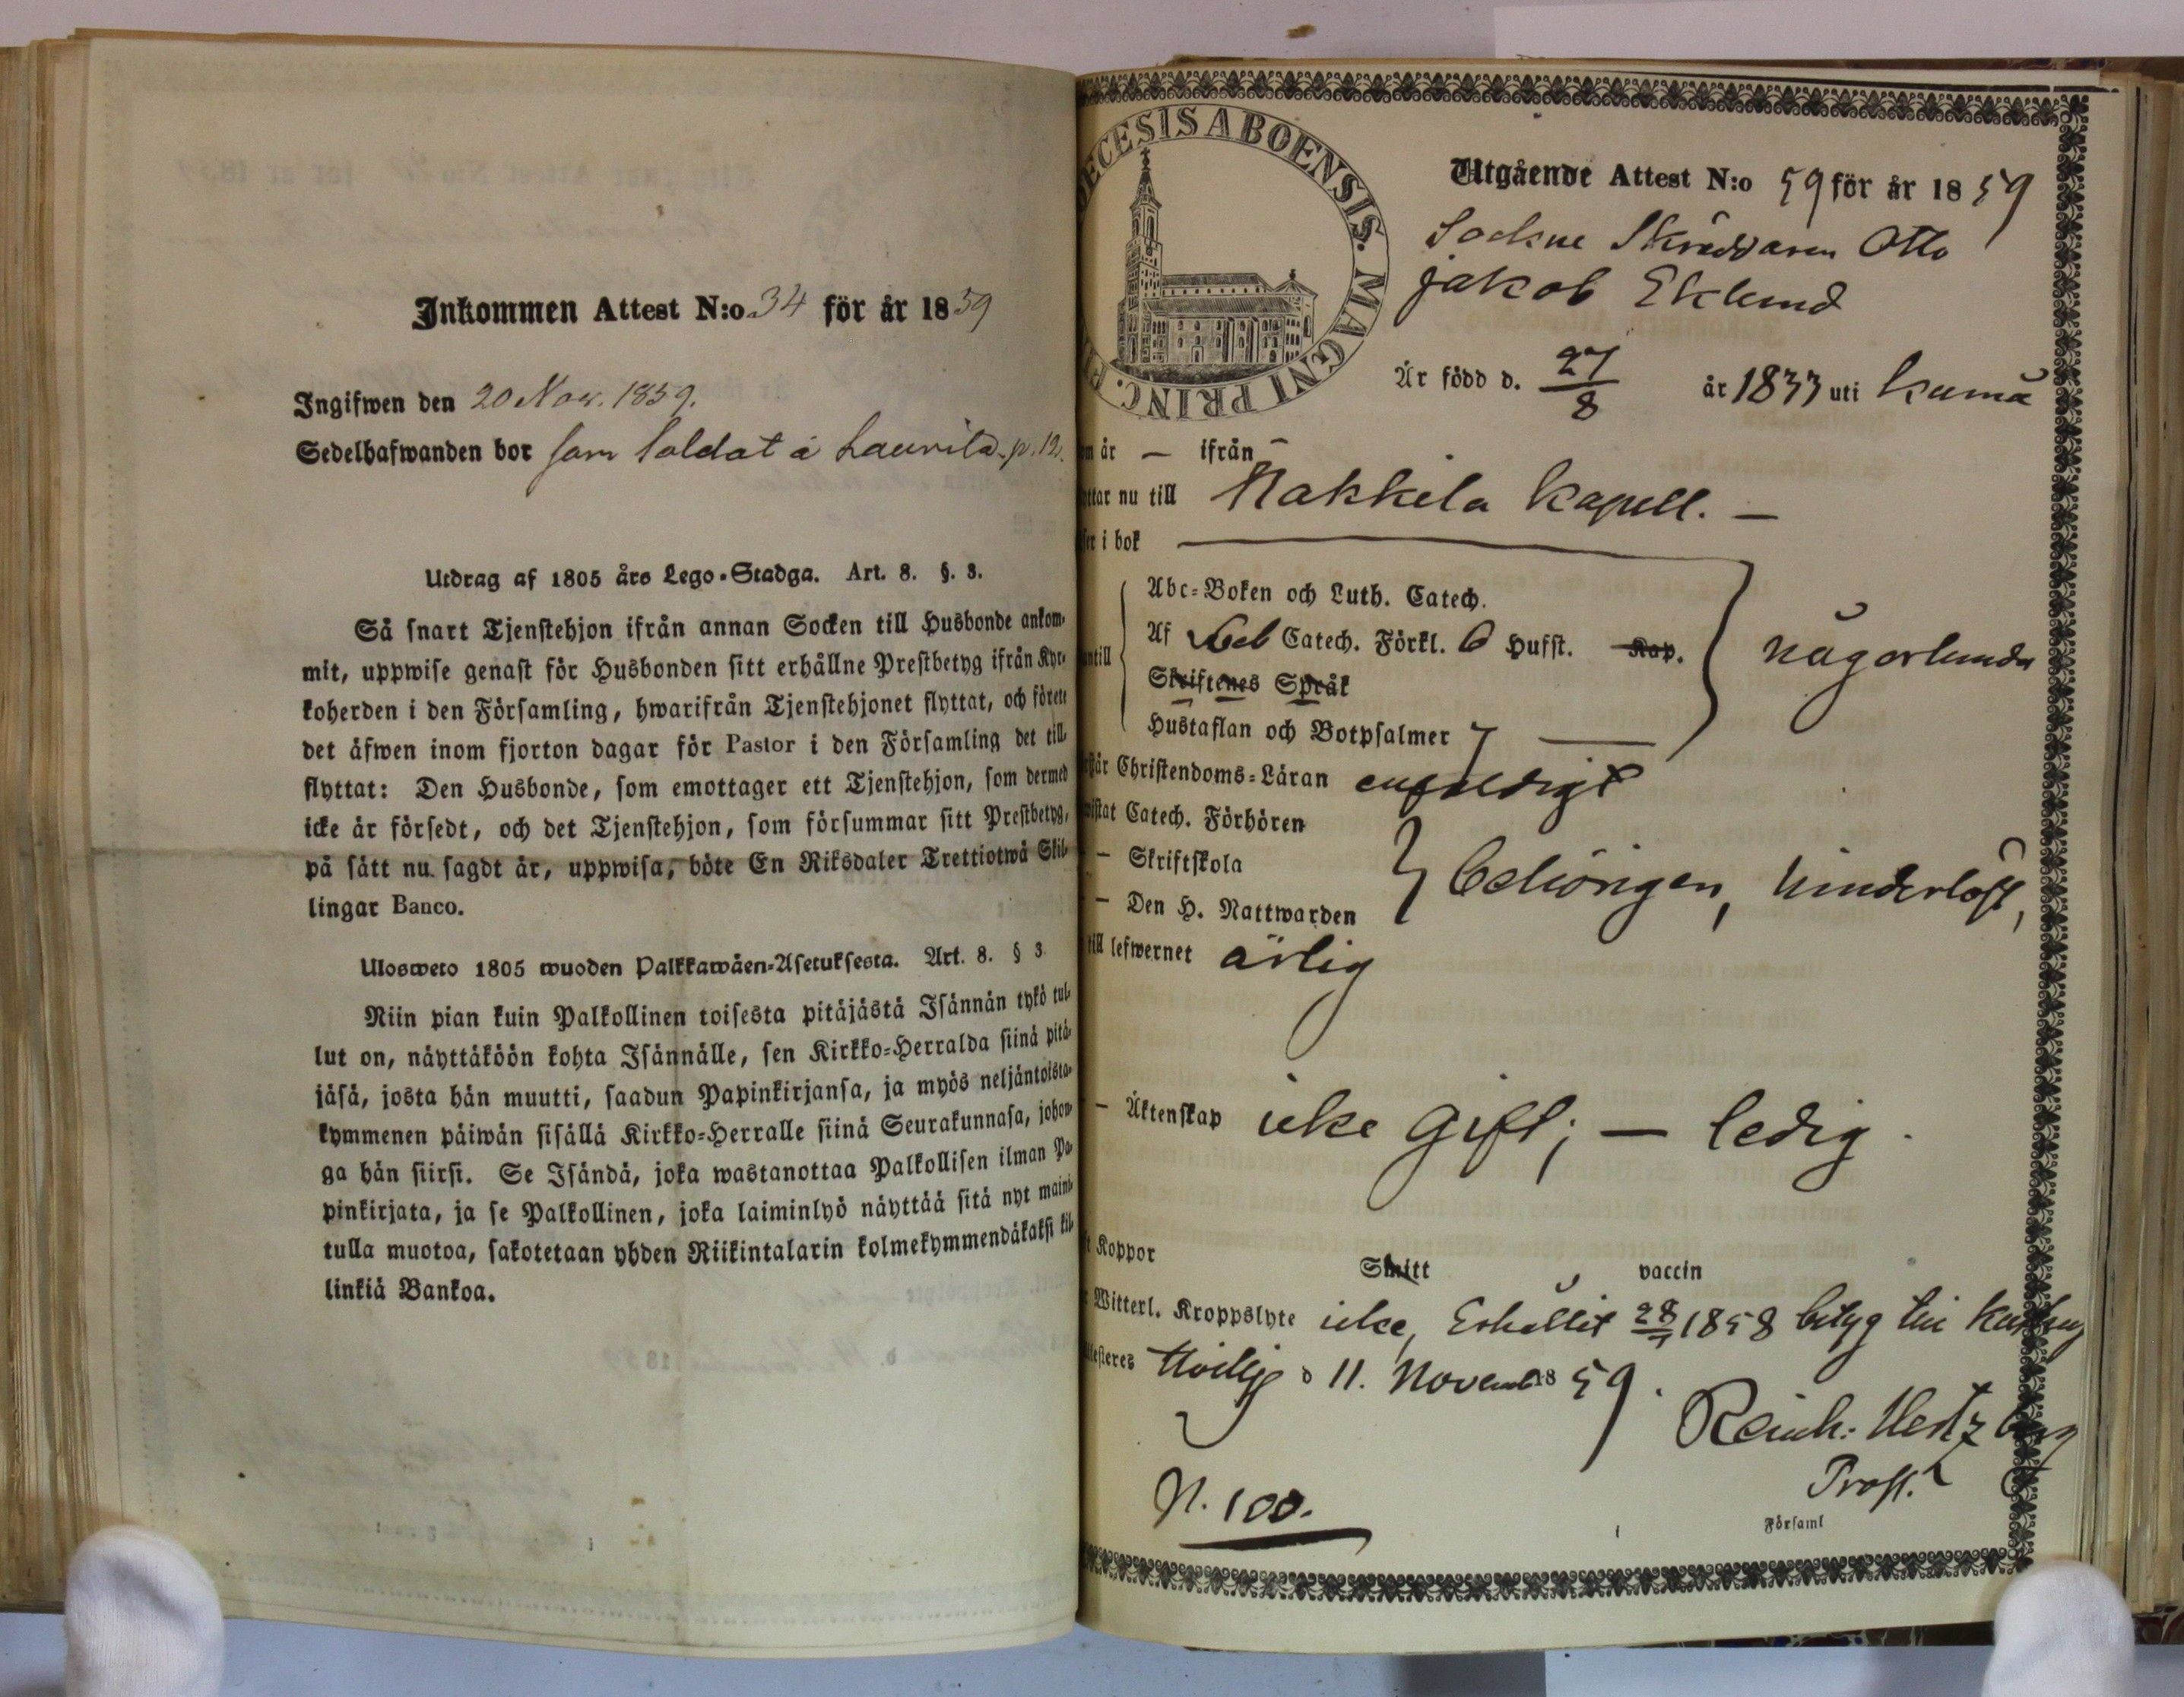 Inkommen Attest N:o 34 för år 1859
Ingifwen den 20 Nov. 1859.
Sedelhafwanden bor som Soldat å Laurila p. 12.
Utdrag af 1805 års Lego-Stadga. Art. 8. §. 3.
Så snart Tjenstehjon ifrån annan Socken till Husbonde ankom-
mit, uppwise genast för Husbonden sitt erhållne Prestbetyg ifrån Kyr-
koherden i den Församling, hwarifrån Tjenstehjonet flyttat, och förete
det äfwen inom fjorton dagar för Pastor i den Församling det till-
flyttat: Den Husbonde, som emottager ett Tjenstehjon, som dermed
icke är försedt, och det Tjenstehjon, som försummar sitt Prestbetyg,
på sätt nu sagdt är, uppwisa, böte En Riksdaler Trettiotwå Skil-
lingar Banco.
Ulosweto 1805 wuoden Palkkawäen-Asetuksesta. Art. 8. § 3
Niin pian kuin Palkollinen toisesta pitäjästä Isännän tykö tul-
lut on, näyttäköön kohta Isännälle, sen Kirkko-Herralda siinä pitä-
jäsä, josta hän muutti, saadun Papinkirjansa, ja myös neljäntoista-
kymmenen päiwän sisällä Kirkko-Herralle siinä Seurakunnasa, johon-
ga hän siirsi. Se Isändä, joka wastanottaa Palkollisen ilman Pa-
pinkirjata, ja se Palkollinen, joka laiminlyö näyttää sitä nyt maini-
tulla muotoa, sakotetaan yhden Riikintalarin kolmekymmendäkaksi kil-
linkiä Bankoa.
ECESIS ABOENSIS. MAGNI PRINC. F
Utgående Attest N:o 59 för år 1859
Sockne Skräddaren Otto
Jakob Eklund
Är född d. 27/8 år 1833 uti Kumå
år — ifrån —
ttar nu till Nakkila Kapell. —
i bok
Abc-Boken och Luth. Catech.
Af Catech. Förkl. 6 Hufst. Kap.
någorlunda
Skriftenes Språk
Hustaflan och Botpsalmer 7
Christendoms-Läran enfaldigt
istat Catech. Förhören
– Skriftskola
behörigen, hinderlöst,
– Den H. Nattwarden
till lefwernet ärlig
– Äktenskap icke gift; — ledig.
Koppor Smitt vaccin
Witterl. Kroppslyte icke, Erhållit 1858 betyg till
d 11. Novemb 1859.
Reinh: Hertzberg
Prost.
N. 100.
i Församl